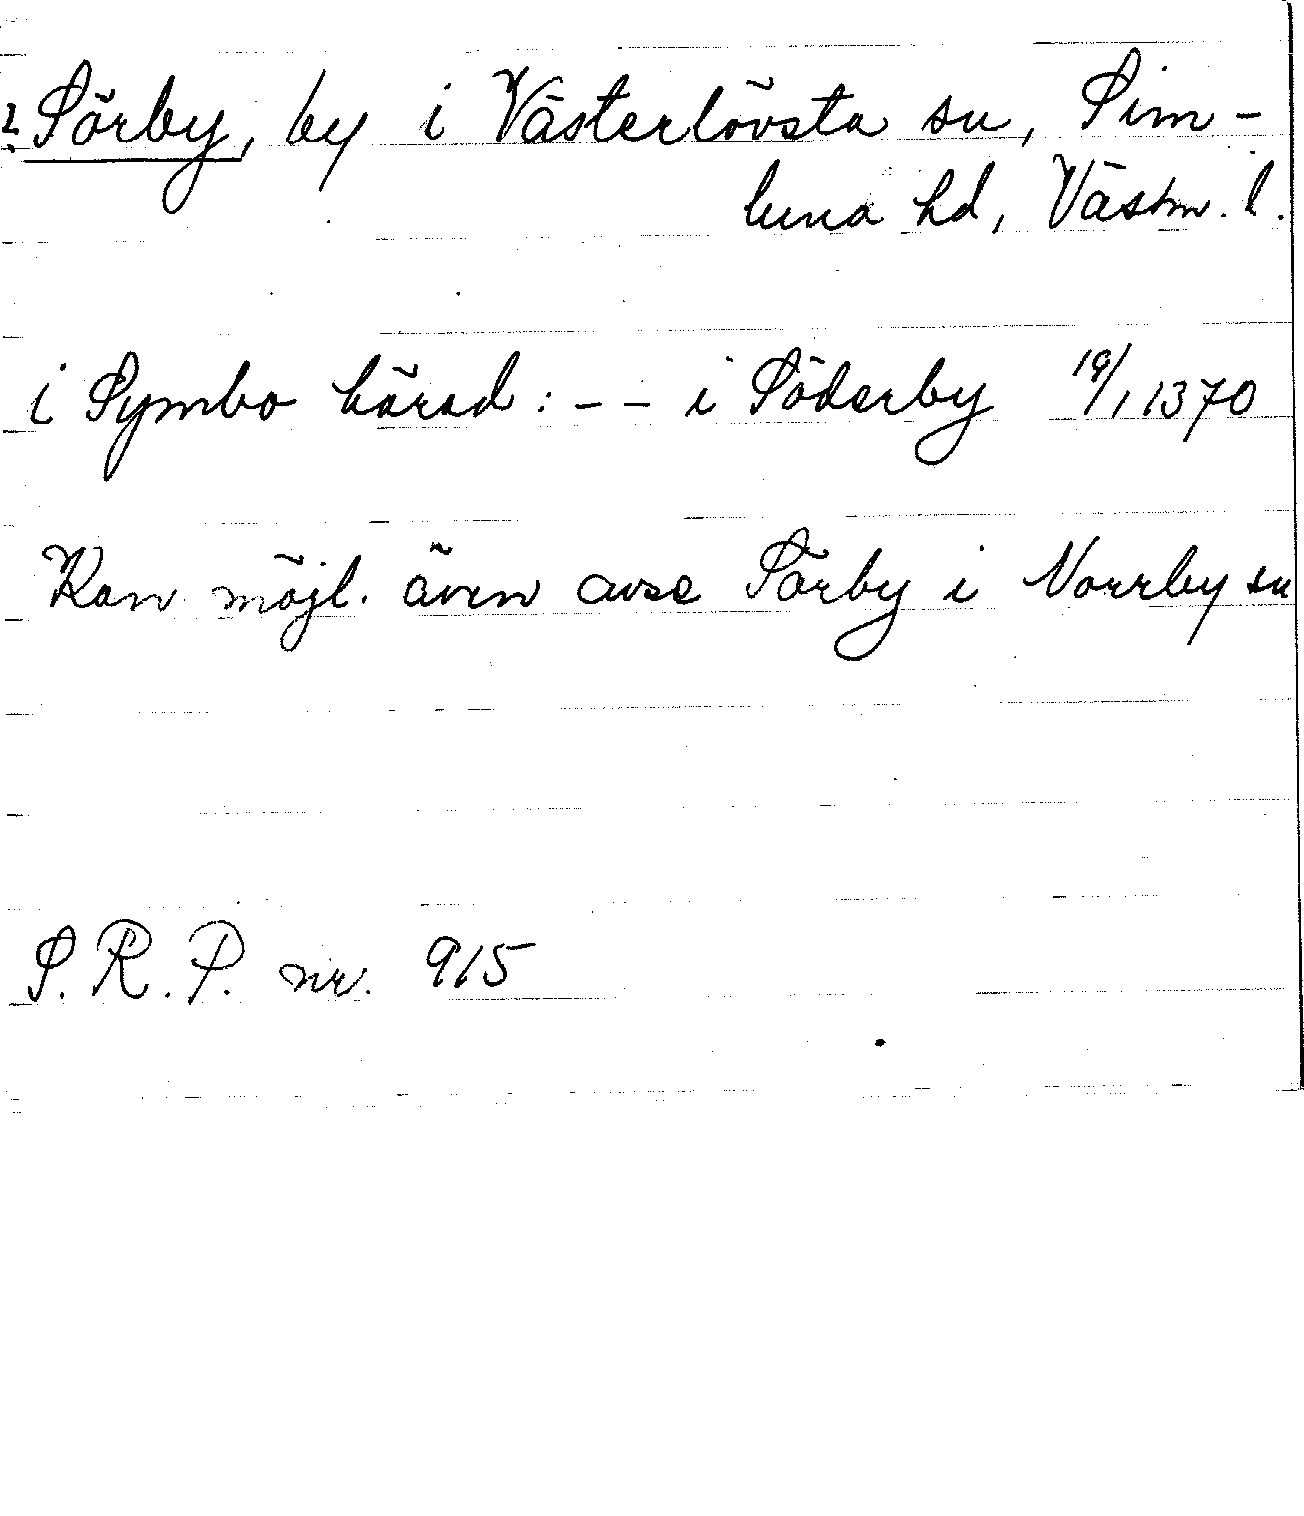 ? Sörby, by i Västerlövsta sn, Sim-
luna hd, Västm. l.
i Symbo härad: - - i Söderby 19/1 1370
Kan möjl. även avse Sörby i Norrby sn
S.R.P. nr. 915